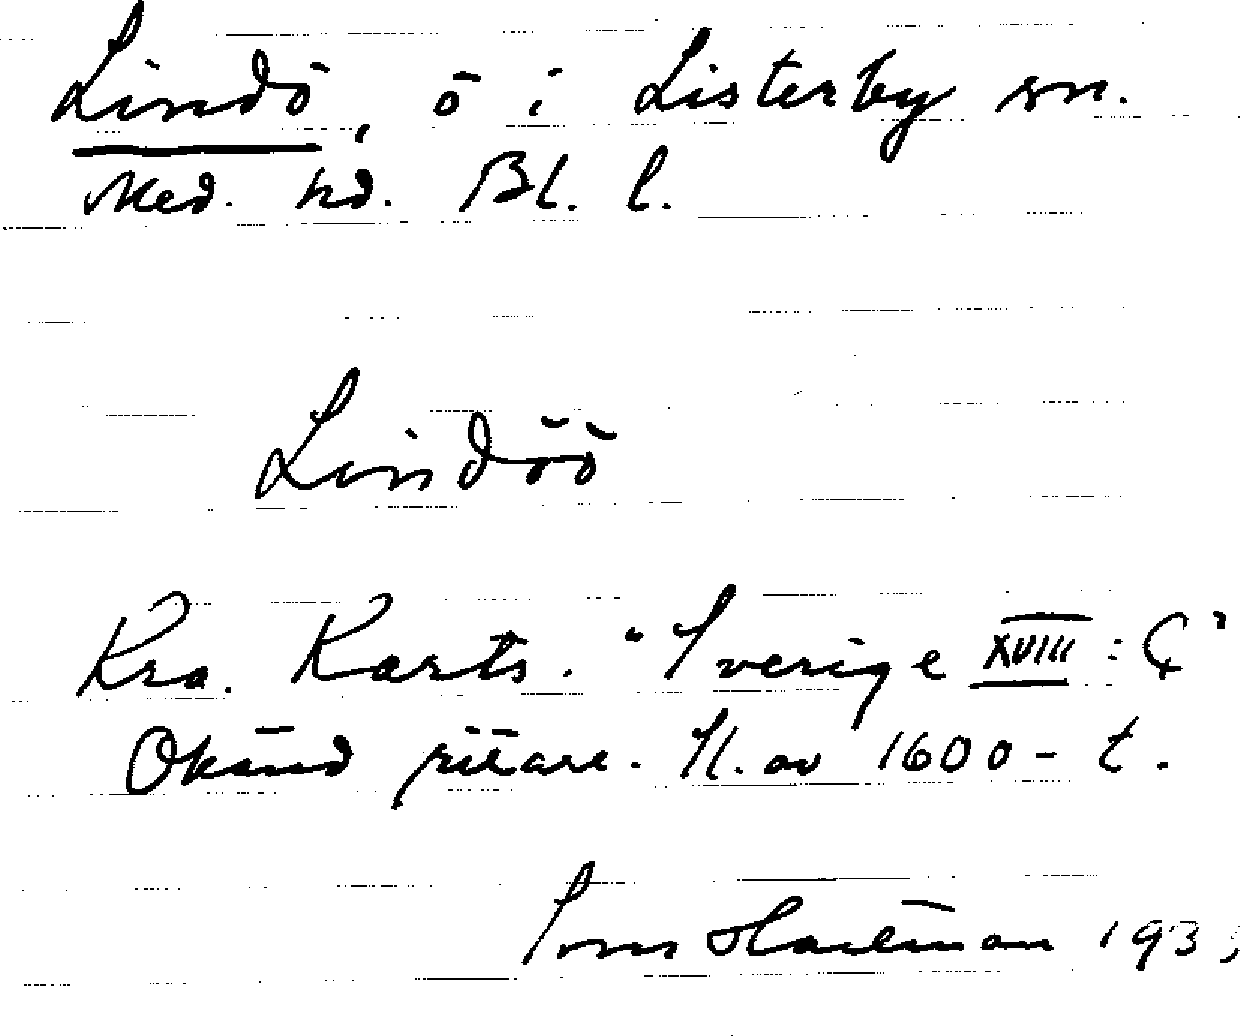 Lindö, ö i Listerby sn.
Med. hd. Bl. l.
Lindöö
Kra. Karts. "Sverige XVIII: Ç"
Okänd ritare. Sl. av 1600-t.
Hartman 193